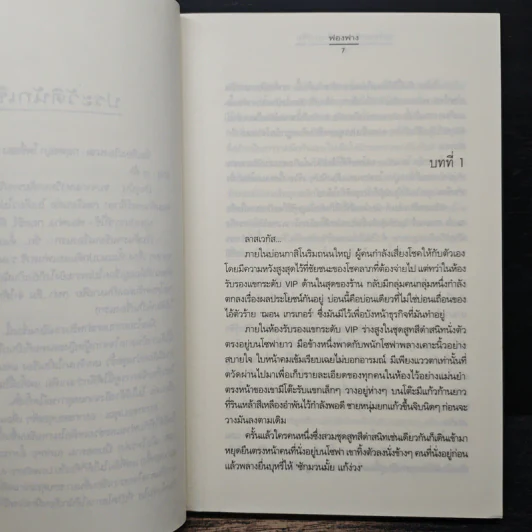 ฟองฟาง
7
บทที่ 1
ลาสเวกัส...
ภายในบ่อนกาสิโนริมถนนใหญ่ ผู้คนกำลังเสี่ยงโชคให้กับตัวเอง
โดยมีความหวังสูงสุดไว้ที่ชัยชนะของโชคลาภที่ต้องจ่ายไป แต่ทว่าในห้อง
รับรองแขกระดับ VIP ด้านในสุดของร้าน กลับมีกลุ่มคนกลุ่มหนึ่งกำลัง
ตกลงเรื่องผลประโยชน์กันอยู่ บ่อนนี้คือบ่อนเดียวที่ไม่ใช่บ่อนเถื่อนของ
ไอ้ตัวร้าย 'ฌอน เกรเกอร์' ซึ่งมันมีไว้เพื่อบังหน้าธุรกิจที่มันทำอยู่
ภายในห้องรับรองแขกระดับ VIP ร่างสูงในชุดสูทสีดำสนิทนั่งตัว
ตรงอยู่บนโซฟายาว มือข้างหนึ่งพาดกับพนักโซฟาพลางเคาะนิ้วอย่าง
สบายใจ ใบหน้าคมเข้มเรียบเฉยไม่บอกอารมณ์ มีเพียงแววตาเท่านั้นที่
ตวัดผ่านไปมาเพื่อเก็บรายละเอียดของทุกคนในห้องไว้อย่างแม่นยำ
ตรงหน้าของเขามีโต๊ะรับแขกเล็กๆ วางอยู่ห่างๆ บนโต๊ะมีแก้วก้านยาว
ที่รินเหล้าสีเหลืองอำพันไว้กำลังพอดี ชายหนุ่มยกแก้วขึ้นจิบนิดๆ ก่อนจะ
วางมันลงตามเดิม
ครั้นแล้วใครคนหนึ่งซึ่งสวมชุดสูทสีดำสนิทเช่นเดียวกันก็เดินเข้ามา
หยุดยืนตรงหน้าคนที่นั่งอยู่บนโซฟา เขาทิ้งตัวลงนั่งข้างๆ คนที่นั่งอยู่ก่อน
แล้วพลางยื่นบุหรี่ให้ 'ซักมวนมั้ย แก้ง่วง'